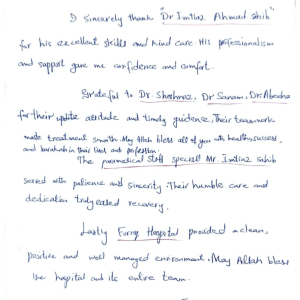 I sincerely thank "Dr Imtiaz Ahmad Shib"
for his excellent skills and kind care His professionalism
and support gave me confidence and comfort.
Grateful to Dr. Shoehnaz, Dr Sanam, Dr. Abeeha
for their update attitude and timely guidence. Their teamwork
made treatment smooth. May Allah bless all of you with health, success,
and barakah in their lives and profession.
The paramedical staff speciell Mr. Imtiaz sahib
served with patience and sincerity. Their humble care and
dedication truly eased recovery.
Lastly Furrog Hospital provided a clean,
positive and well managed environment. May Allah bless
the hospital and its entire team.